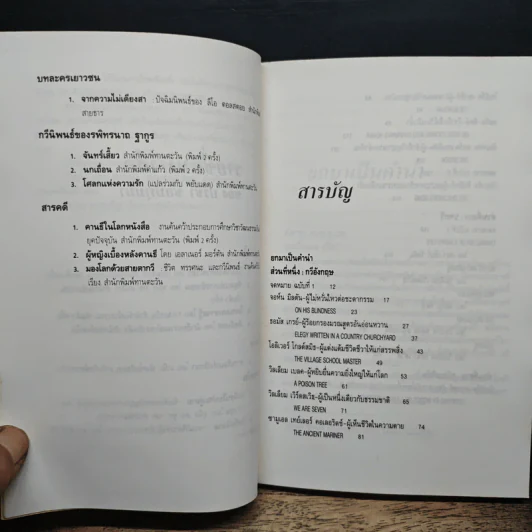 บทละครเยาวชน
1. จากความไม่เดียงสา : ปัจฉิมนิพนธ์ของ ลีโอ ตอลสตอย สำนักพิมพ์
สายธาร
กวีนิพนธ์ของรพินทรนาถ ฐากูร
1. จันทร์เสี้ยว สำนักพิมพ์ทานตะวัน (พิมพ์ 2 ครั้ง)
2. นกเถื่อน สำนักพิมพ์คำแก้ว (พิมพ์ 2 ครั้ง)
3. โศลกแห่งความรัก (แปลร่วมกับ พยับแดด) สำนักพิมพ์ทานตะวัน
สารคดี
1. คานธีในโลกหนังสือ : งานค้นคว้าประกอบการศึกษาวิชาวัฒนธรรม
ยุคปัจจุบัน สำนักพิมพ์ทานตะวัน (พิมพ์ 2 ครั้ง)
2. ผู้หญิงเบื้องหลังคานธี โดย เอลาเนอร์ มอร์ตัน สำนักพิมพ์ทานตะวัน
3. มองโลกด้วยสายตากวี : ชีวิต ทรรศนะ และกวีนิพนธ์
เรียง สำนักพิมพ์ทานตะวัน
สารบัญ
อกมาเป็นคำนำ
ส่วนที่หนึ่ง : กวีอังกฤษ
จดหมาย ฉบับที่ 1 12
จอห์น มิลตัน-ผู้ไม่หวั่นไหวต่อชะตากรรม
ON HIS BLINDNESS 23
ธอมัส เกรย์-ผู้ร้อยกรองมรณสูตรอันอ่อนหวาน 27
ELEGY WRITTEN IN A COUNTRY CHURCHYARD 37
โอลิเวอร์ โกลด์สมิธ-ผู้แต่งแต้มชีวิตชีวาให้แก่สรรพสิ่ง 43
THE VILLAGE SCHOOL MASTER 49
วิลเลียม เบลค-ผู้หยิบยื่นความยิ่งใหญ่ให้แก่โลก 53
A POISON TREE 61
วิลเลียม เวิร์ดสเวิธ-ผู้เป็นหนึ่งเดียวกับธรรมชาติ 65
WE ARE SEVEN 71
ซามูเอล เทย์เลอร์ คอเลอริดช์-ผู้เห็นชีวิตในความตาย 74
THE ANCIENT MARINER 81